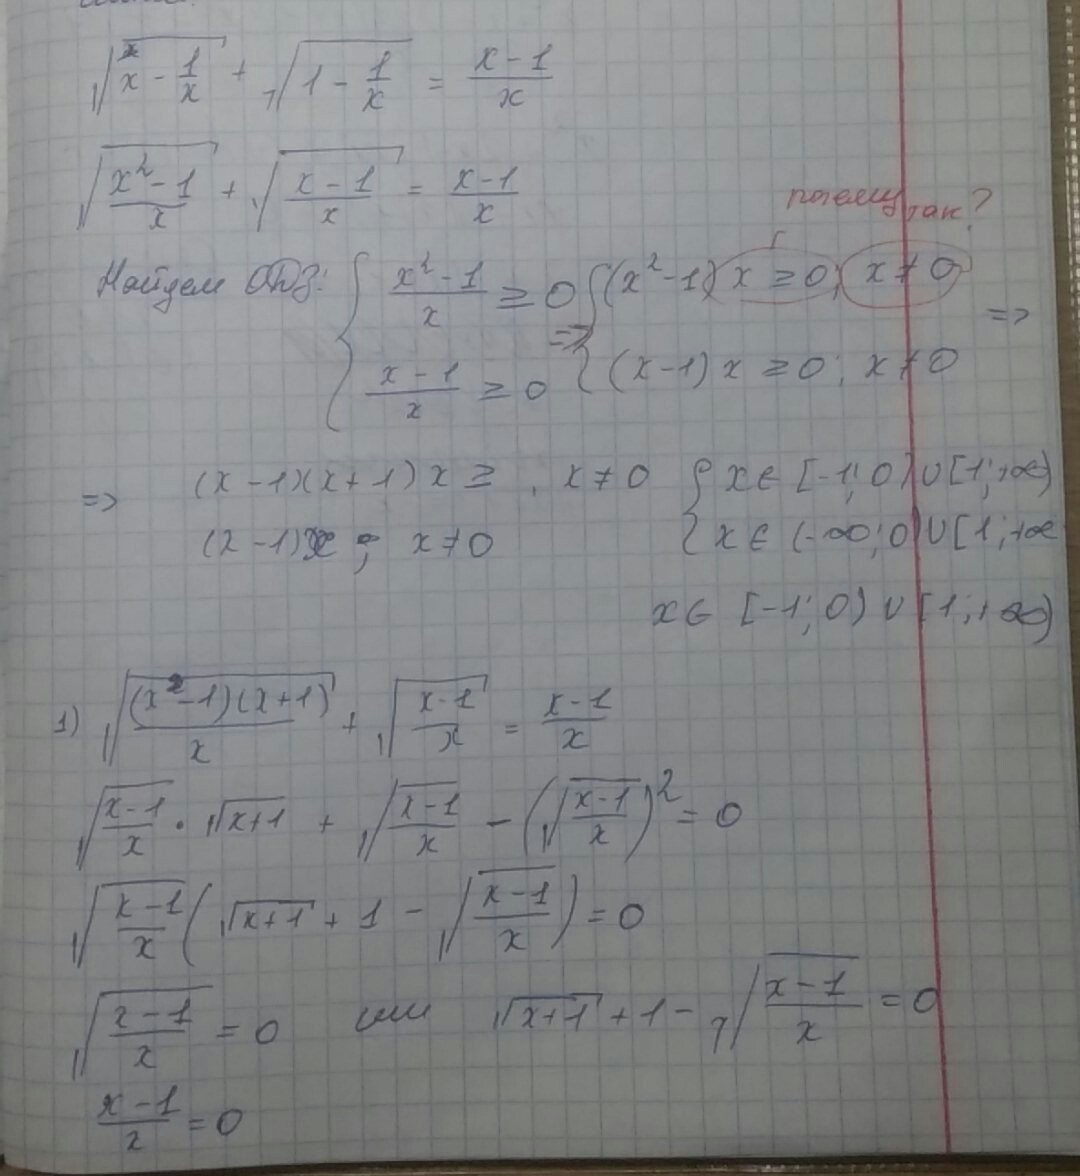 √(x - 1/x) + √(1 - 1/x) = (x-1)/x
√((x²-1)/x) + √((x-1)/x) = (x-1)/x
почему так?
Найдем ОДЗ: { (x²-1)/x ≥ 0 => { (x²-1) x ≥ 0; x ≠ 0 =>
(x-1)/x ≥ 0 (x-1) x ≥ 0; x ≠ 0
=> (x-1)(x+1) x ≥ , x ≠ 0 { x ∈ [-1; 0) ∪ [1; +∞)
(x-1)x ; x ≠ 0 x ∈ (-∞; 0) ∪ [1; +∞
x ∈ [-1; 0) ∪ [1; +∞)
1) √((x-1)(x+1)/x) + √((x-1)/x) = (x-1)/x
√((x-1)/x) · √(x+1) + √((x-1)/x) - (√((x-1)/x))² = 0
√((x-1)/x) (√(x+1) + 1 - √((x-1)/x)) = 0
√((x-1)/x) = 0 или √(x+1) + 1 - √((x-1)/x) = 0
(x-1)/x = 0